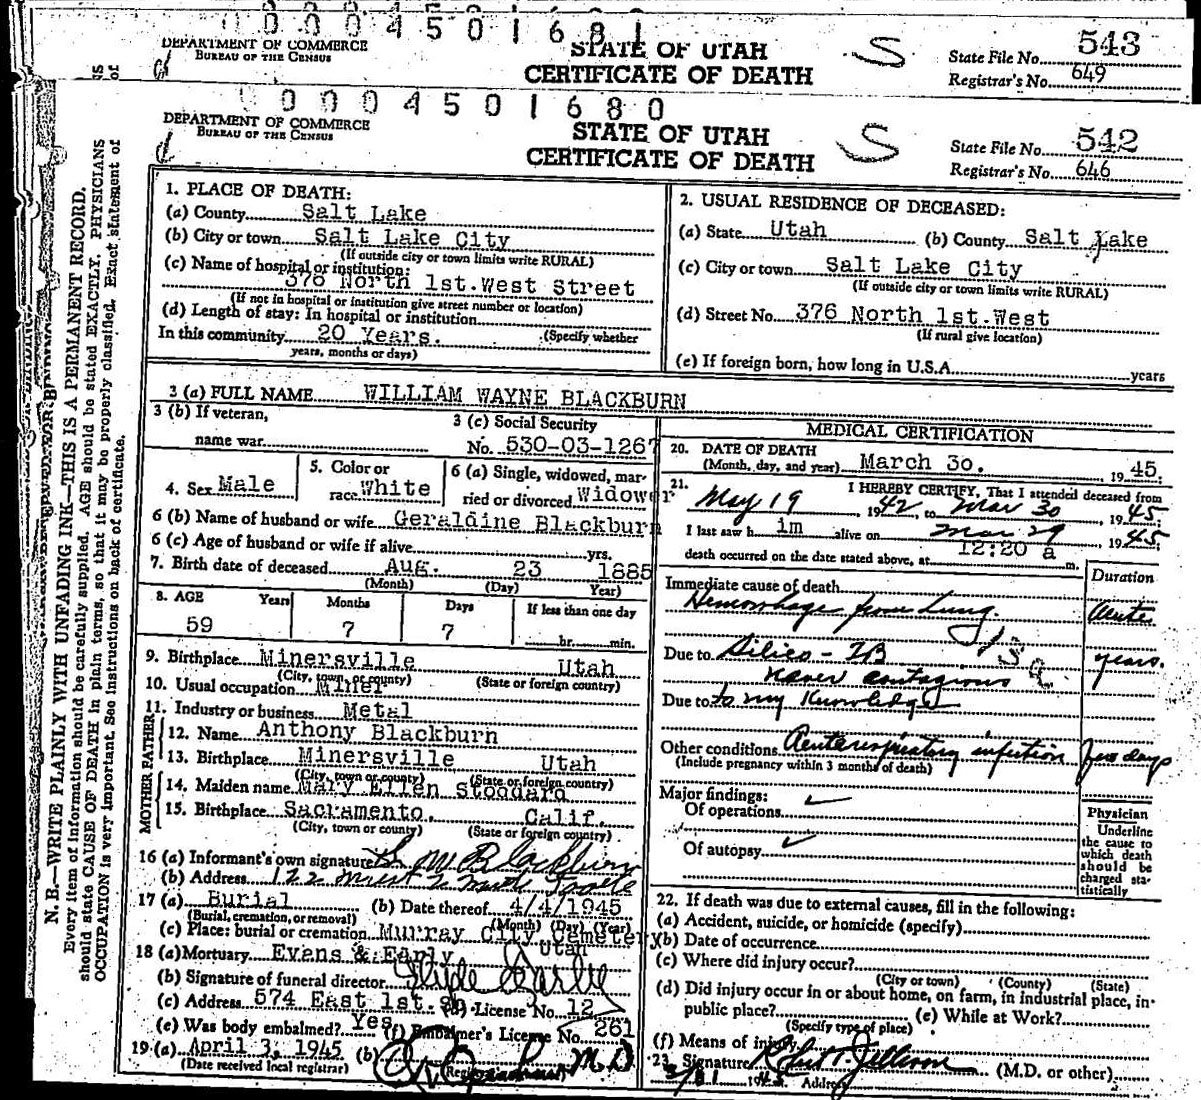 0 0 0 4 5 0 1 6 8 1
DEPARTMENT OF COMMERCE
BUREAU OF THE CENSUS
STATE OF UTAH
CERTIFICATE OF DEATH
S
State File No. 543
Registrar's No. 649
0 0 0 4 5 0 1 6 8 0
DEPARTMENT OF COMMERCE
BUREAU OF THE CENSUS
STATE OF UTAH
CERTIFICATE OF DEATH
S
State File No. 542
Registrar's No. 646
N. B.—WRITE PLAINLY WITH UNFADING INK—THIS IS A PERMANENT RECORD.
Every item of information should be carefully supplied. AGE should be stated EXACTLY. PHYSICIANS
should state CAUSE OF DEATH in plain terms, so that it may be properly classified. Exact statement of
OCCUPATION is very important. See instructions on back of certificate.
1. PLACE OF DEATH:
(a) County Salt Lake
(b) City or town Salt Lake City
(If outside city or town limits write RURAL)
(c) Name of hospital or institution:
376 North 1st.West Street
(If not in hospital or institution give street number or location)
(d) Length of stay: In hospital or institution
In this community 20 Years. (Specify whether
years, months or days)
2. USUAL RESIDENCE OF DECEASED:
(a) State Utah (b) County Salt Lake
(c) City or town Salt Lake City
(If outside city or town limits write RURAL)
(d) Street No. 376 North 1st.West
(If rural give location)
(e) If foreign born, how long in U.S.A. years
3 (a) FULL NAME WILLIAM WAYNE BLACKBURN
3 (b) If veteran,
name war
3 (c) Social Security
No. 530-03-1267
4. Sex Male
5. Color or
race White
6 (a) Single, widowed, mar-
ried or divorced Widower
6 (b) Name of husband or wife Geraldine Blackburn
6 (c) Age of husband or wife if alive yrs.
7. Birth date of deceased Aug. 23 1885
(Month) (Day) Year)
8. AGE Years Months Days If less than one day
59 7 7 hr. min.
9. Birthplace Minersville Utah
(City, town, or county) (State or foreign country)
10. Usual occupation Miner
11. Industry or business Metal
FATHER
12. Name Anthony Blackburn
13. Birthplace Minersville Utah
(City, town or county) (State or foreign country)
MOTHER
14. Maiden name Mary Ellen Stoddard
15. Birthplace Sacramento, Calif.
(City, town or county) (State or foreign country)
16 (a) Informant's own signature Blackburn
(b) Address 122
17 (a) Burial (b) Date thereof 4/4/1945
(Burial, cremation, or removal) (Month) (Day) (Year)
(c) Place: burial or cremation Murray City Cemetery
Utah
18 (a) Mortuary Evans & Early
(b) Signature of funeral director
(c) Address 574 East 1st. So. (d) License No. 12
(e) Was body embalmed? Yes (f) Embalmer's License No. 261
19 (a) April 3, 1945 (b) M.D
(Date received local registrar) (Registrar)
MEDICAL CERTIFICATION
20. DATE OF DEATH
(Month, day, and year) March 30. 19 45.
21. I HEREBY CERTIFY, That I attended deceased from
May 19, 1942, to Mar 30, 1945;
I last saw h im alive on Mar 29, 1945;
death occurred on the date stated above, at 12:20 a m.
Duration
Immediate cause of death
Hemorrhage from Lung. Acute
Due to Silico - TB years.
never contagious
Due to to my Knowledge
Other conditions Acute respiratory infection few days
(Include pregnancy within 3 months of death)
Major findings:
Of operations
Of autopsy
Physician
Underline
the cause to
which death
should be
charged sta-
tistically
22. If death was due to external causes, fill in the following:
(a) Accident, suicide, or homicide (specify)
(b) Date of occurrence
(c) Where did injury occur?
(City or town) (County) (State)
(d) Did injury occur in or about home, on farm, in industrial place, in
public place? (e) While at Work?
(Specify type of place)
(f) Means of injury
23. Signature Robert T. Jellison (M.D. or other)
3/31 1945 Address